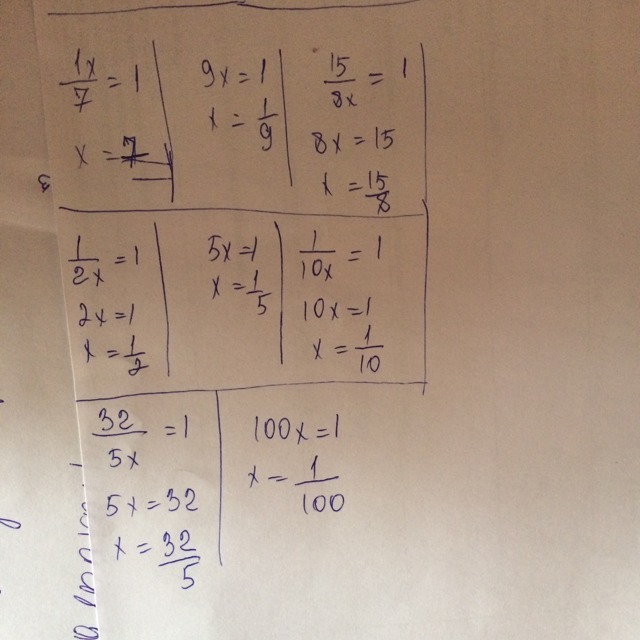 1x/7 = 1
x = 7
9x = 1
x = 1/9
15/8x = 1
8x = 15
x = 15/8
1/2x = 1
2x = 1
x = 1/2
5x = 1
x = 1/5
1/10x = 1
10x = 1
x = 1/10
32/5x = 1
5x = 32
x = 32/5
100x = 1
x = 1/100